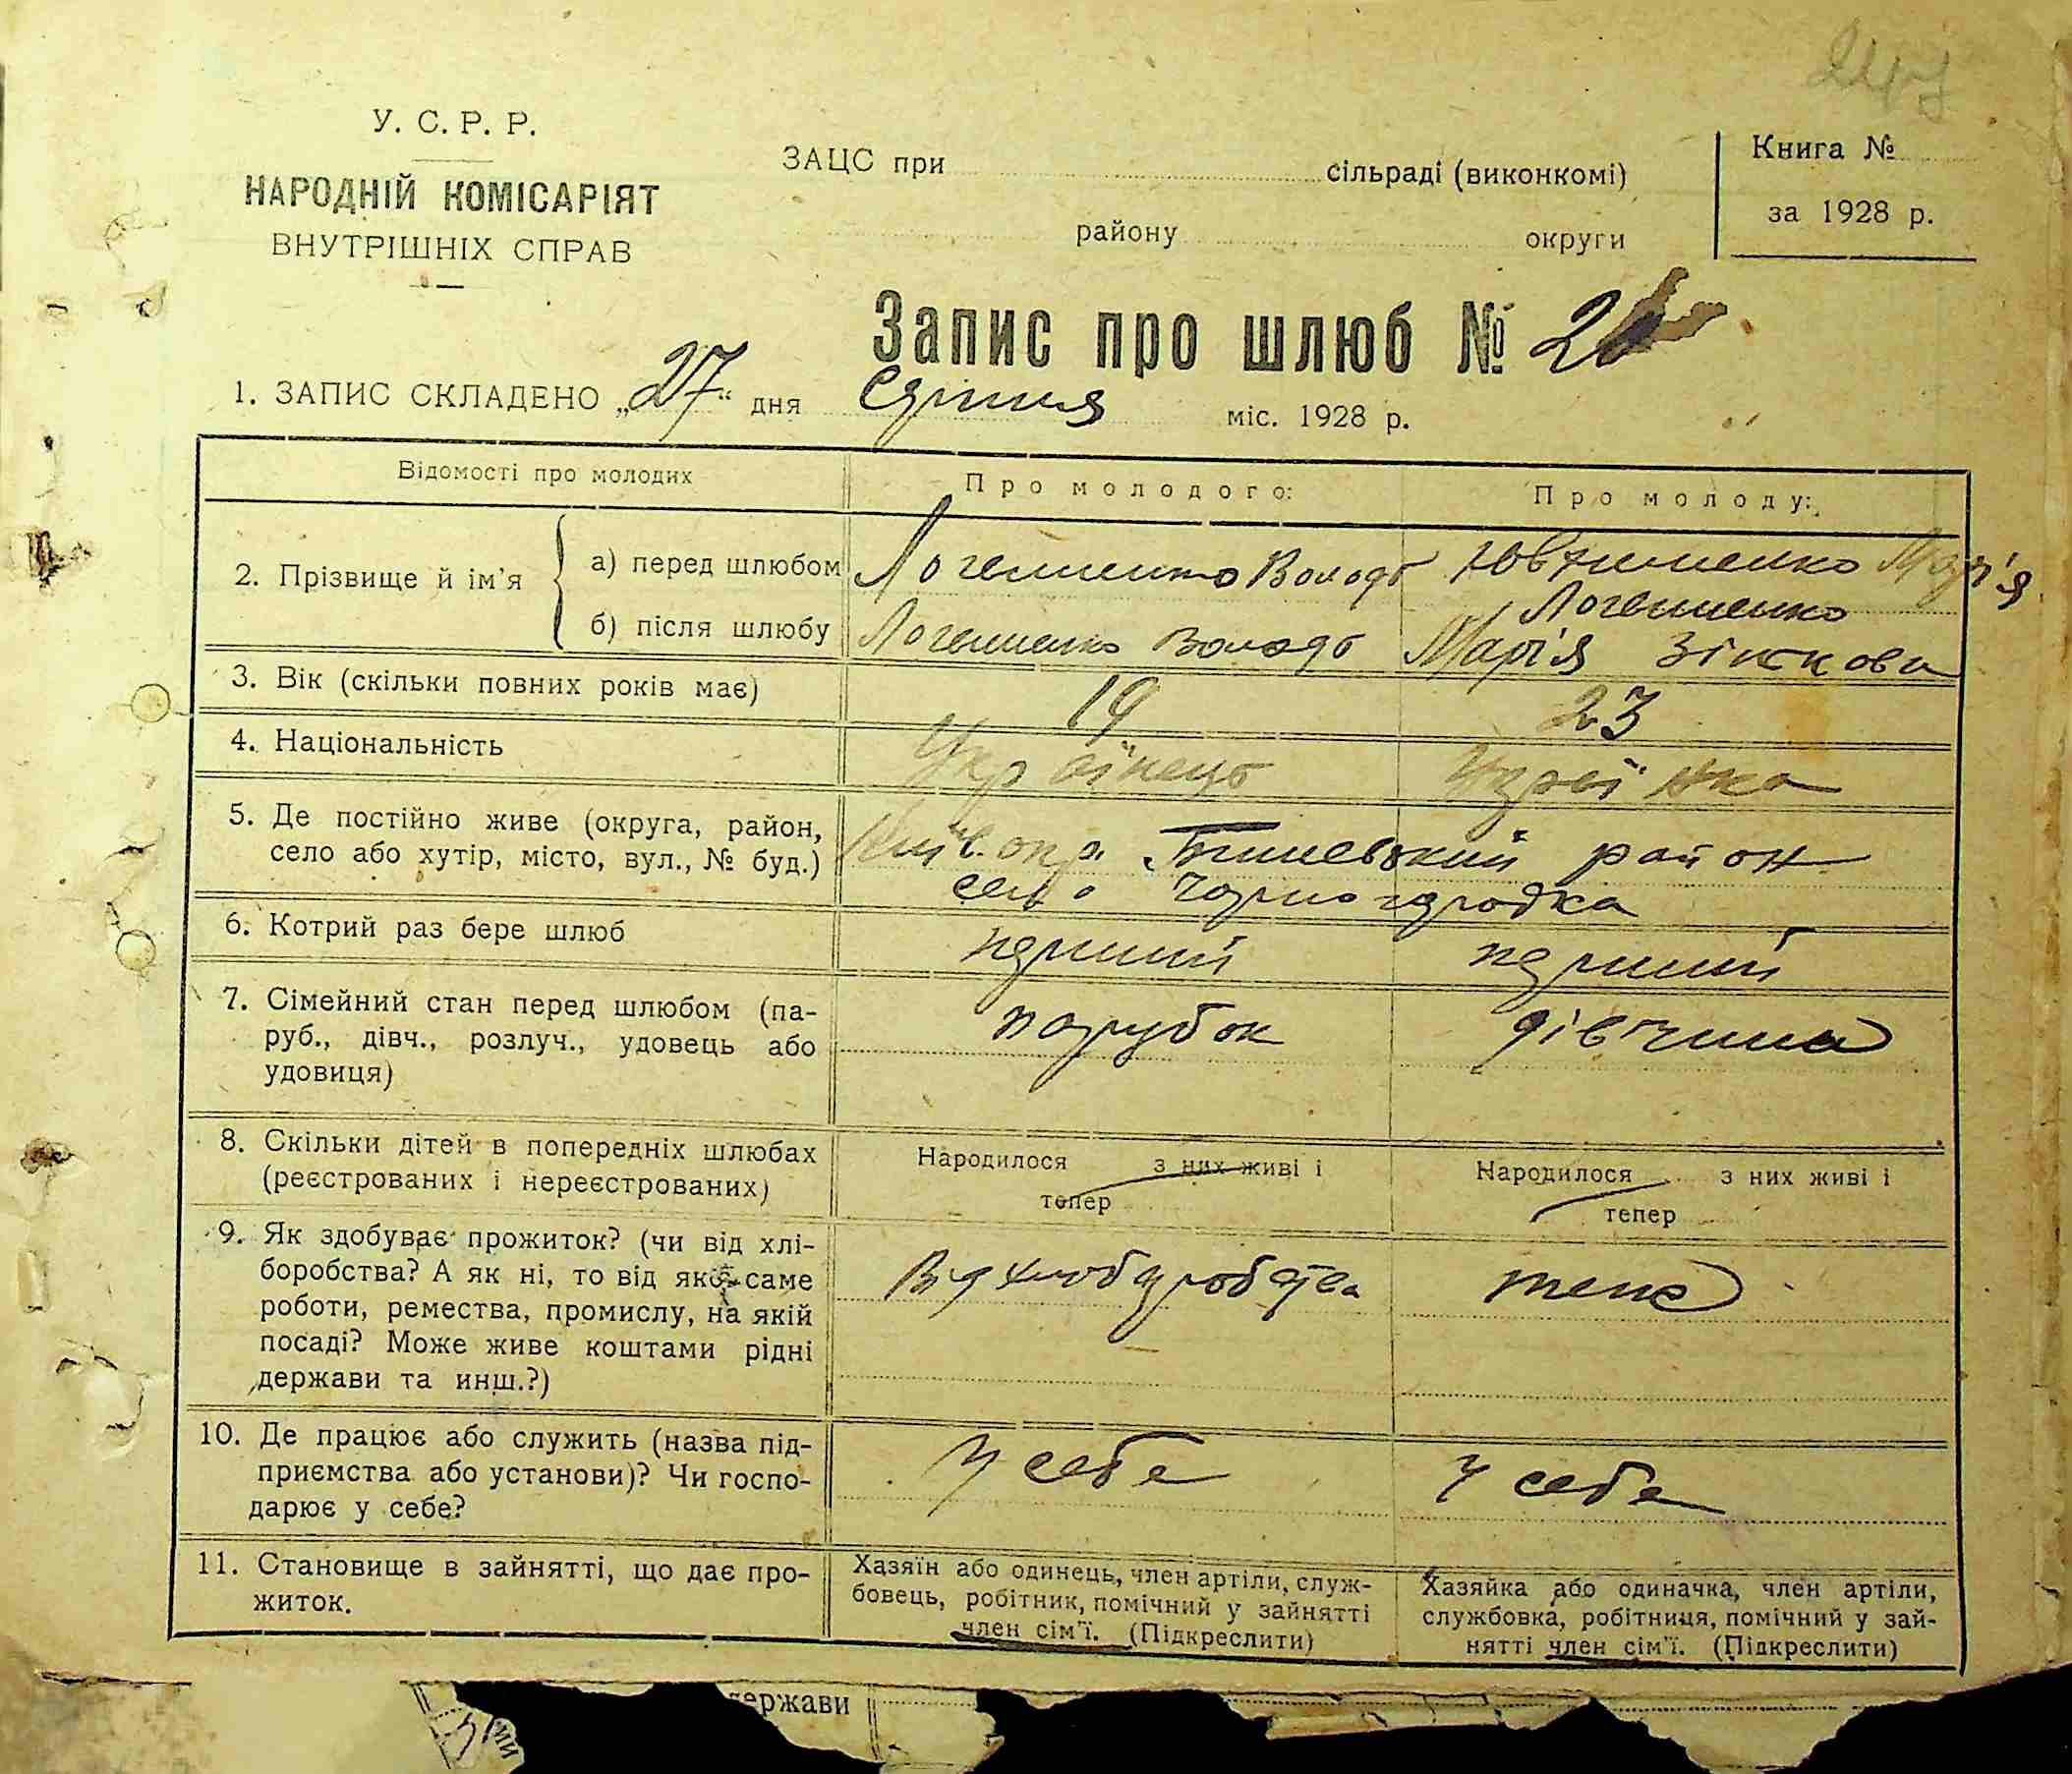 У. С. Р. Р.
НАРОДНІЙ КОМІСАРІЯТ
ВНУТРІШНІХ СПРАВ
ЗАЦС при сільраді (виконкомі)
району округи
Книга №
за 1928 р.
Запис про шлюб №
1. ЗАПИС СКЛАДЕНО „27“ дня міс. 1928 р.
Відомості про молодих
Про молодого:
Про молоду:
2. Прізвище й ім'я
а) перед шлюбом
Володь
Марія
б) після шлюбу
Володь
Марія
3. Вік (скільки повних років має)
19
23
4. Національність
Українець
5. Де постійно живе (округа, район,
село або хутір, місто, вул., № буд.)
Київ. окр. район
село Чорногородка
6. Котрий раз бере шлюб
перший
перший
7. Сімейний стан перед шлюбом (па-
руб., дівч., розлуч., удовець або
удовиця)
парубок
дівчина
8. Скільки дітей в попередніх шлюбах
(реєстрованих і нереєстрованих)
Народилося з них живі і
тепер
Народилося з них живі і
тепер
9. Як здобуває прожиток? (чи від хлі-
боробства? А як ні, то від якої саме
роботи, ремества, промислу, на якій
посаді? Може живе коштами рідні
держави та инш.?)
Від
теж
10. Де працює або служить (назва під-
приємства або установи)? Чи госпо-
дарює у себе?
У себе
У себе
11. Становище в зайнятті, що дає про-
житок.
Хазяїн або одинець, член артіли, служ-
бовець, робітник, помічний у зайнятті
член сім'ї. (Підкреслити)
Хазяйка або одиначка, член артіли,
службовка, робітниця, помічний у зай-
нятті член сім'ї. (Підкреслити)
держави